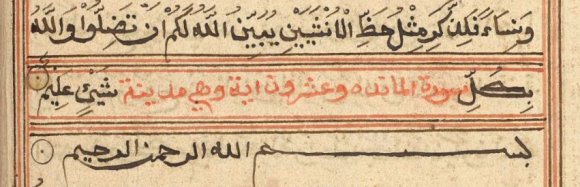 وَنِسَاءً فَلِلذَّكَرِ مِثْلُ حَظِّ الْأُنْثَيَيْنِ يُبَيِّنُ اللَّهُ لَكُمْ أَنْ تَضِلُّوا وَاللَّهُ
بِكُلِّ سورة المائده وعشرون اية وهي مدينة شَيْءٍ عَلِيمٌ
بسم الله الرحمن الرحيم